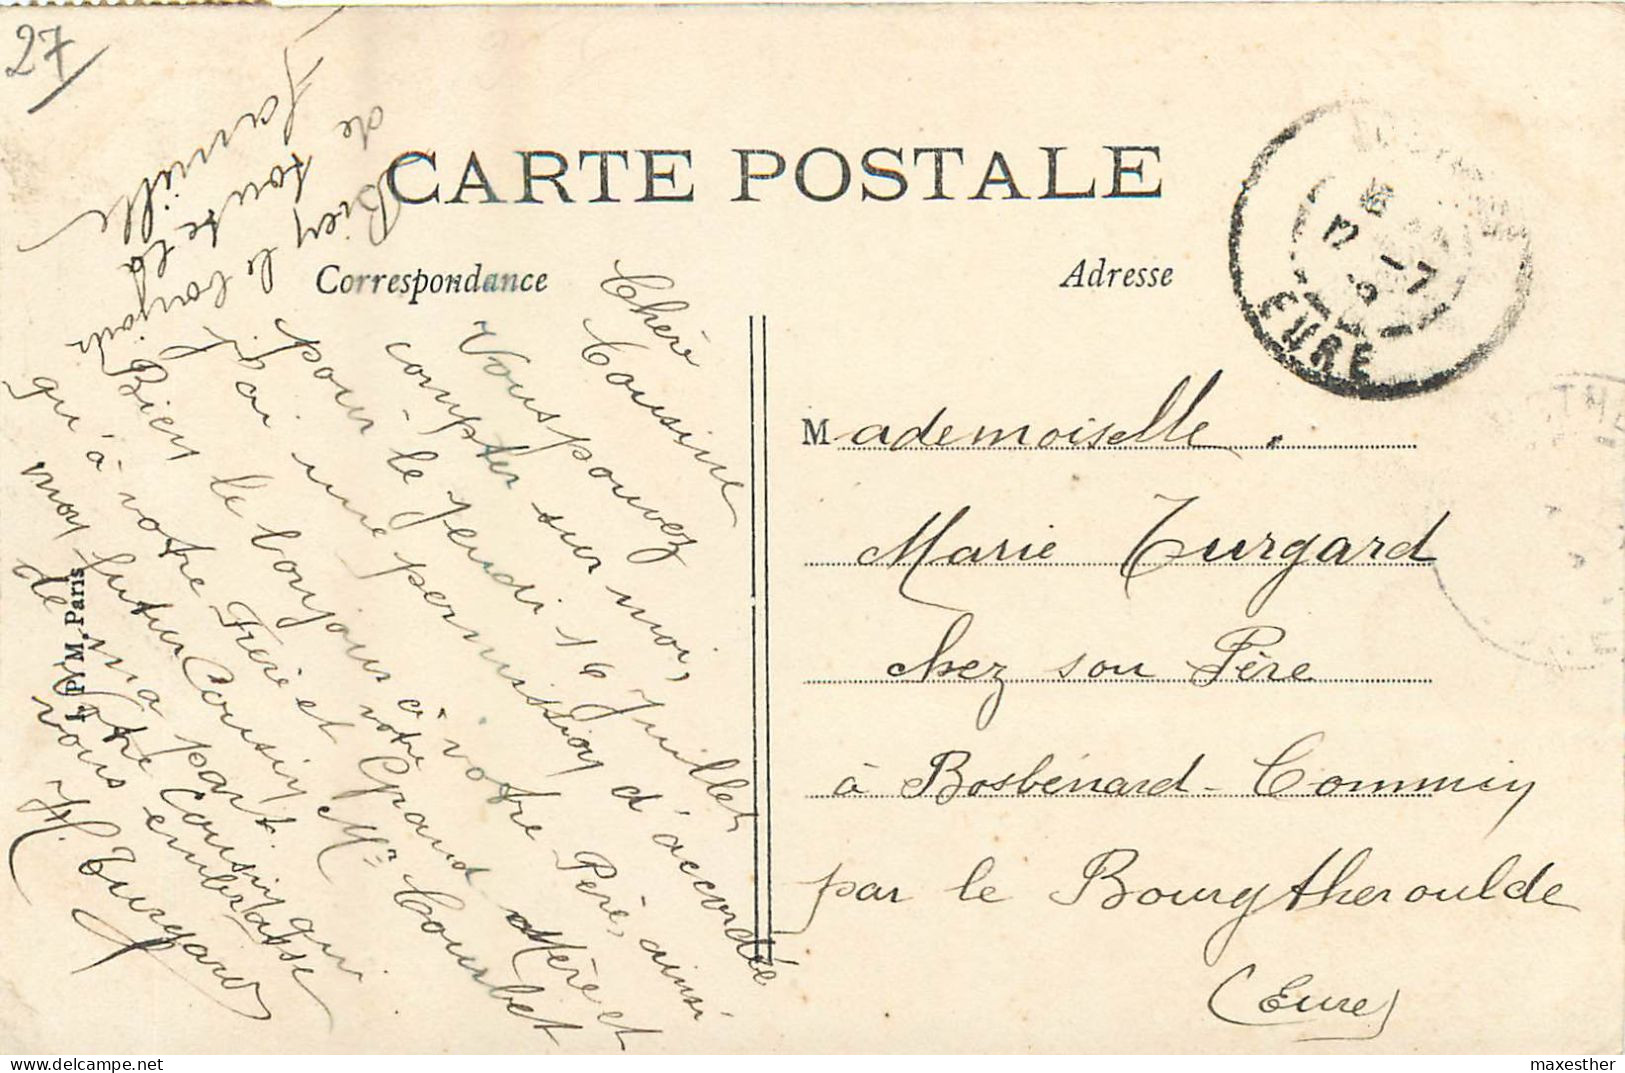 27
CARTE POSTALE
Correspondance
Adresse
Chère
Cousine
Vous pouvez
compter sur moi,
pour le jeudi 16 Juillet
j'ai une permission d'accordée
Bien le bonjour à votre Père, ainsi
qu'à votre Frère et votre Grand Mère et
mon futur Cousin Mr Courbet
de ma part.
Votre Cousin qui
vous embrasse
H. Turgard
Bien le bonjour
de toute la
famille
M. Paris
Mademoiselle.
Marie Turgard
chez son Père
à Bosbénard-Commin
par le Bourgtheroulde
(Eure)
EURE
maxesther